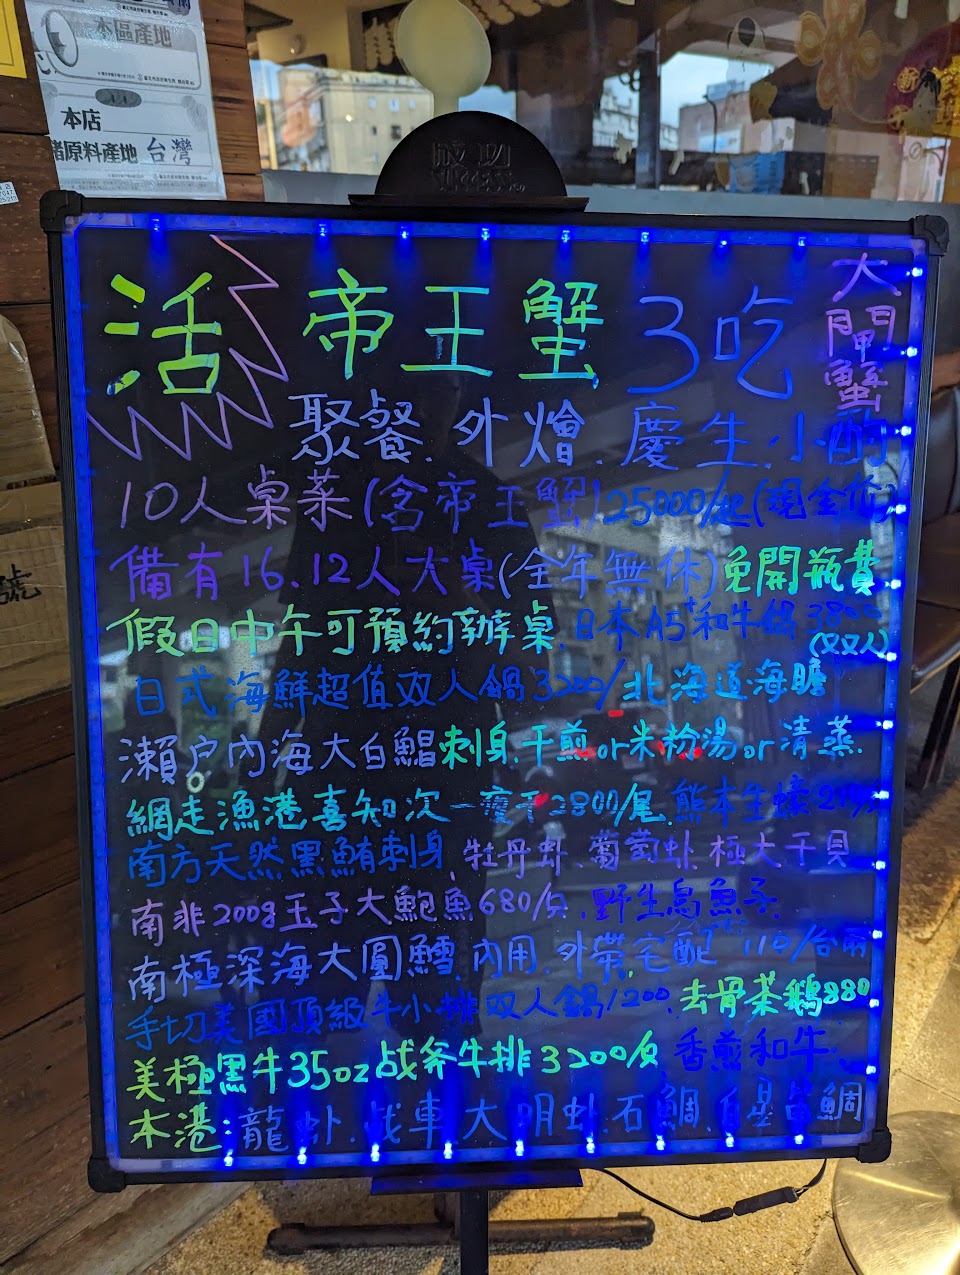 本區產地
本店
豬原料產地 台灣
成功
SUCCESS
活 帝王蟹 3吃
大閘蟹
聚餐.外燴.慶生.小酌
10人桌菜(含帝王蟹)25000/起(現金價)
備有16.12人大桌(全年無休)免開瓶費
假日中午可預約辦桌.日本A5和牛鍋3800
(双人)
日式海鮮超值双人鍋3200/北海道海膽
瀨户內海大白鯧刺身.干煎or米粉湯or清蒸.
網走漁港喜知次一瘦干2800/尾.熊本生蠔
南方天然黑鮪刺身.牡丹虾.葡萄虾.極大干貝
南非200g玉子大鮑魚680/分.野生烏魚子
南極深海大圓鱈.內用.外帶宅配110/台兩
手切美國頂級牛小排双人鍋1200.去骨茶鵝880
美極黑牛35oz战斧牛排3200/反.香煎和牛.
本港:龍虾.战車.大明虾.石鯛.白星笛鯛